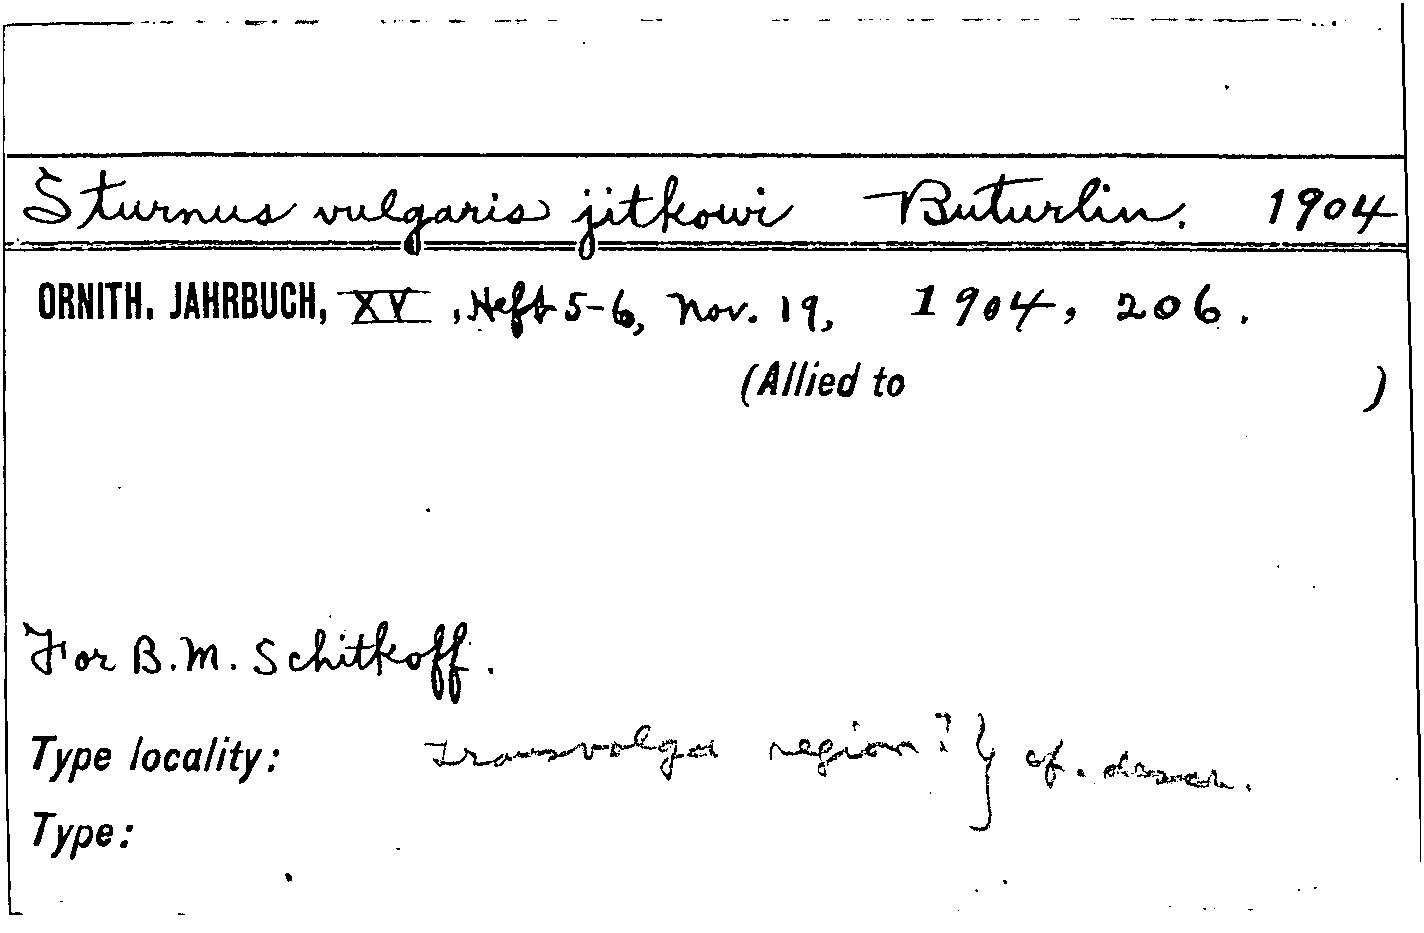 Sturnus vulgaris jitkowi Buturlin. 1904
ORNITH. JAHRBUCH, XV, Heft 5-6, Nov. 19, 1904, 206.
(Allied to )
For B.M. Schitkoff.
Type locality: Transvolga region? } cf. descr.
Type: